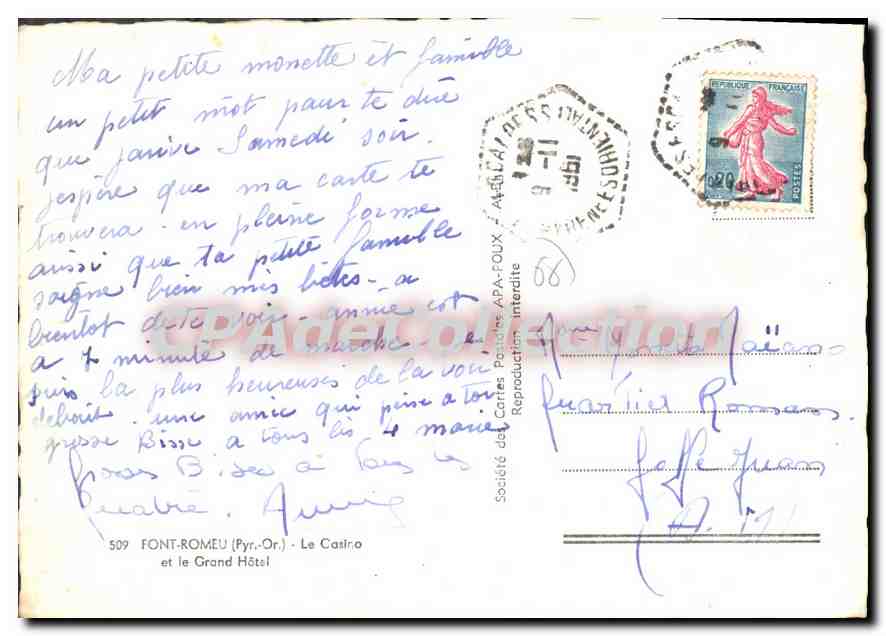 Ma petite monette et famible
un petit mot pour te dire
que jarive Samedi soir.
j'espère que ma carte te
trouvera en pleine forme
aussi que ta petite famible
soigne bien mis bêtes - a
bientot de te voir - annie est
a 7 minute de marche - je
suis la plus heureuses de la voir
debout. une amie qui pense a toi
grosse Bisse a tous les 4 marie
Gros Bises à tous les
quatre. Annie
509 FONT-ROMEU (Pyr.-Or.) - Le Casino
et le Grand Hôtel
Société des Cartes Postales APA-POUX -
Reproduction interdite
66
1961
REPUBLIQUE FRANÇAISE
0,20
POSTES
Mme
Quartier Romans
Golfe Juan
(A. M)
CPAdeCollection